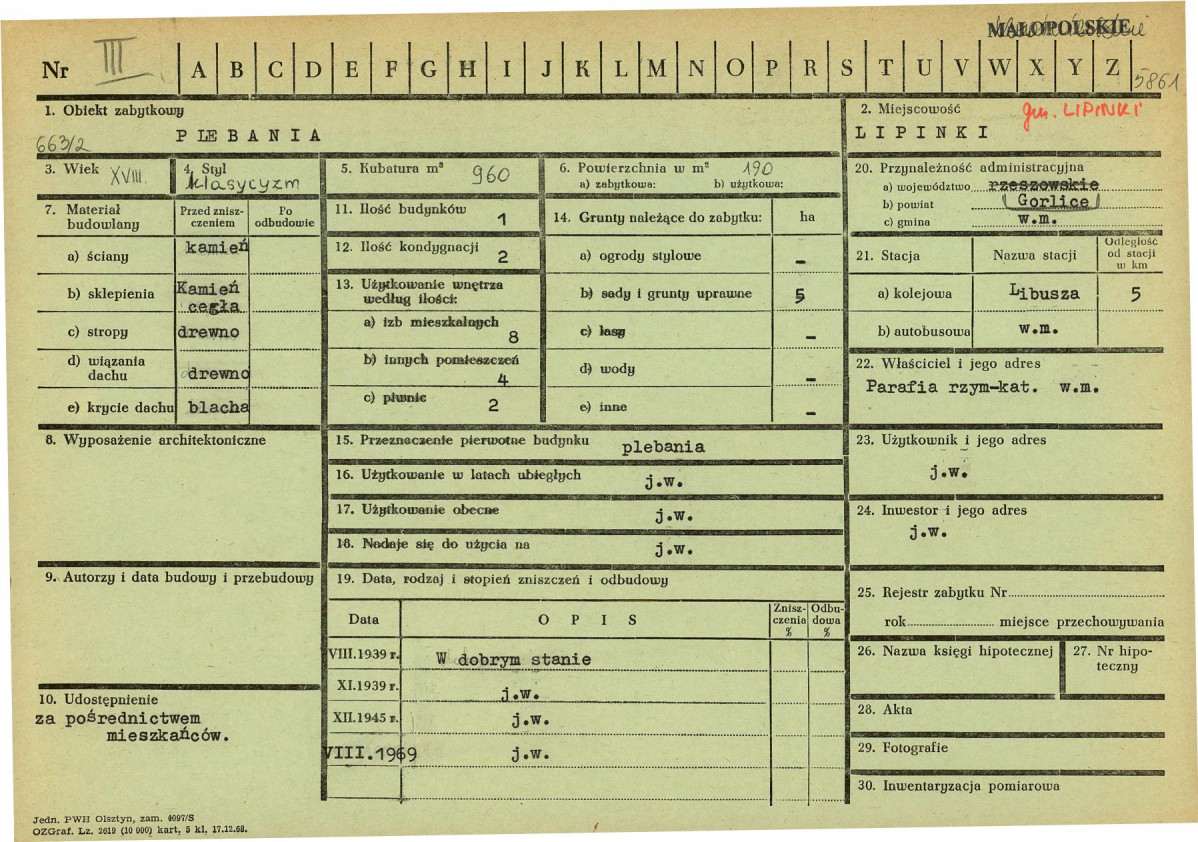 MAŁOPOLSKIE
Nr III A B C D E F G H I J K L M N O P R S T U V W X Y Z
5861
1. Obiekt zabytkowy
PLEBANIA
663/2
2. Miejscowość
gm. LIPINKI
LIPINKI
3. Wiek XVIII.
4. Styl
klasycyzm
5. Kubatura m³ 960
6. Powierzchnia w m² 190
a) zabytkowa: b) użytkowa:
7. Materiał budowlany
Przed zniszczeniem
Po odbudowie
a) ściany kamień
b) sklepienia Kamień
cegła
c) stropy drewno
d) wiązania
dachu drewno
e) krycie dachu blacha
8. Wyposażenie architektoniczne
9. Autorzy i data budowy i przebudowy
10. Udostępnienie
za pośrednictwem
mieszkańców.
11. Ilość budynków 1
12. Ilość kondygnacji 2
13. Użytkowanie wnętrza
według ilości:
a) izb mieszkalnych 8
b) innych pomieszczeń 4
c) piwnic 2
14. Grunty należące do zabytku: ha
a) ogrody stylowe -
b) sady i grunty uprawne 5
c) lasy -
d) wody -
e) inne -
15. Przeznaczenie pierwotne budynku plebania
16. Użytkowanie w latach ubiegłych j.w.
17. Użytkowanie obecne j.w.
18. Nadaje się do użycia na j.w.
19. Data, rodzaj i stopień zniszczeń i odbudowy
Data OPIS Zniszczenia % Odbudowa %
VIII.1939 r. W dobrym stanie
XI.1939 r. j.w.
XII.1945 r. j.w.
VIII.1969 j.w.
20. Przynależność administracyjna
a) województwo rzeszowskie
b) powiat (Gorlice)
c) gmina w.m.
21. Stacja Nazwa stacji Odległość od stacji w km
a) kolejowa Libusza 5
b) autobusowa w.m.
22. Właściciel i jego adres
Parafia rzym-kat. w.m.
23. Użytkownik i jego adres
j.w.
24. Inwestor i jego adres
j.w.
25. Rejestr zabytku Nr
rok miejsce przechowywania
26. Nazwa księgi hipotecznej
27. Nr hipoteczny
28. Akta
29. Fotografie
30. Inwentaryzacja pomiarowa
Jedn. PWH Olsztyn, zam. 4097/S
OZGraf. Lz. 2619 (10 000) kart, 5 kl. 17.12.68.